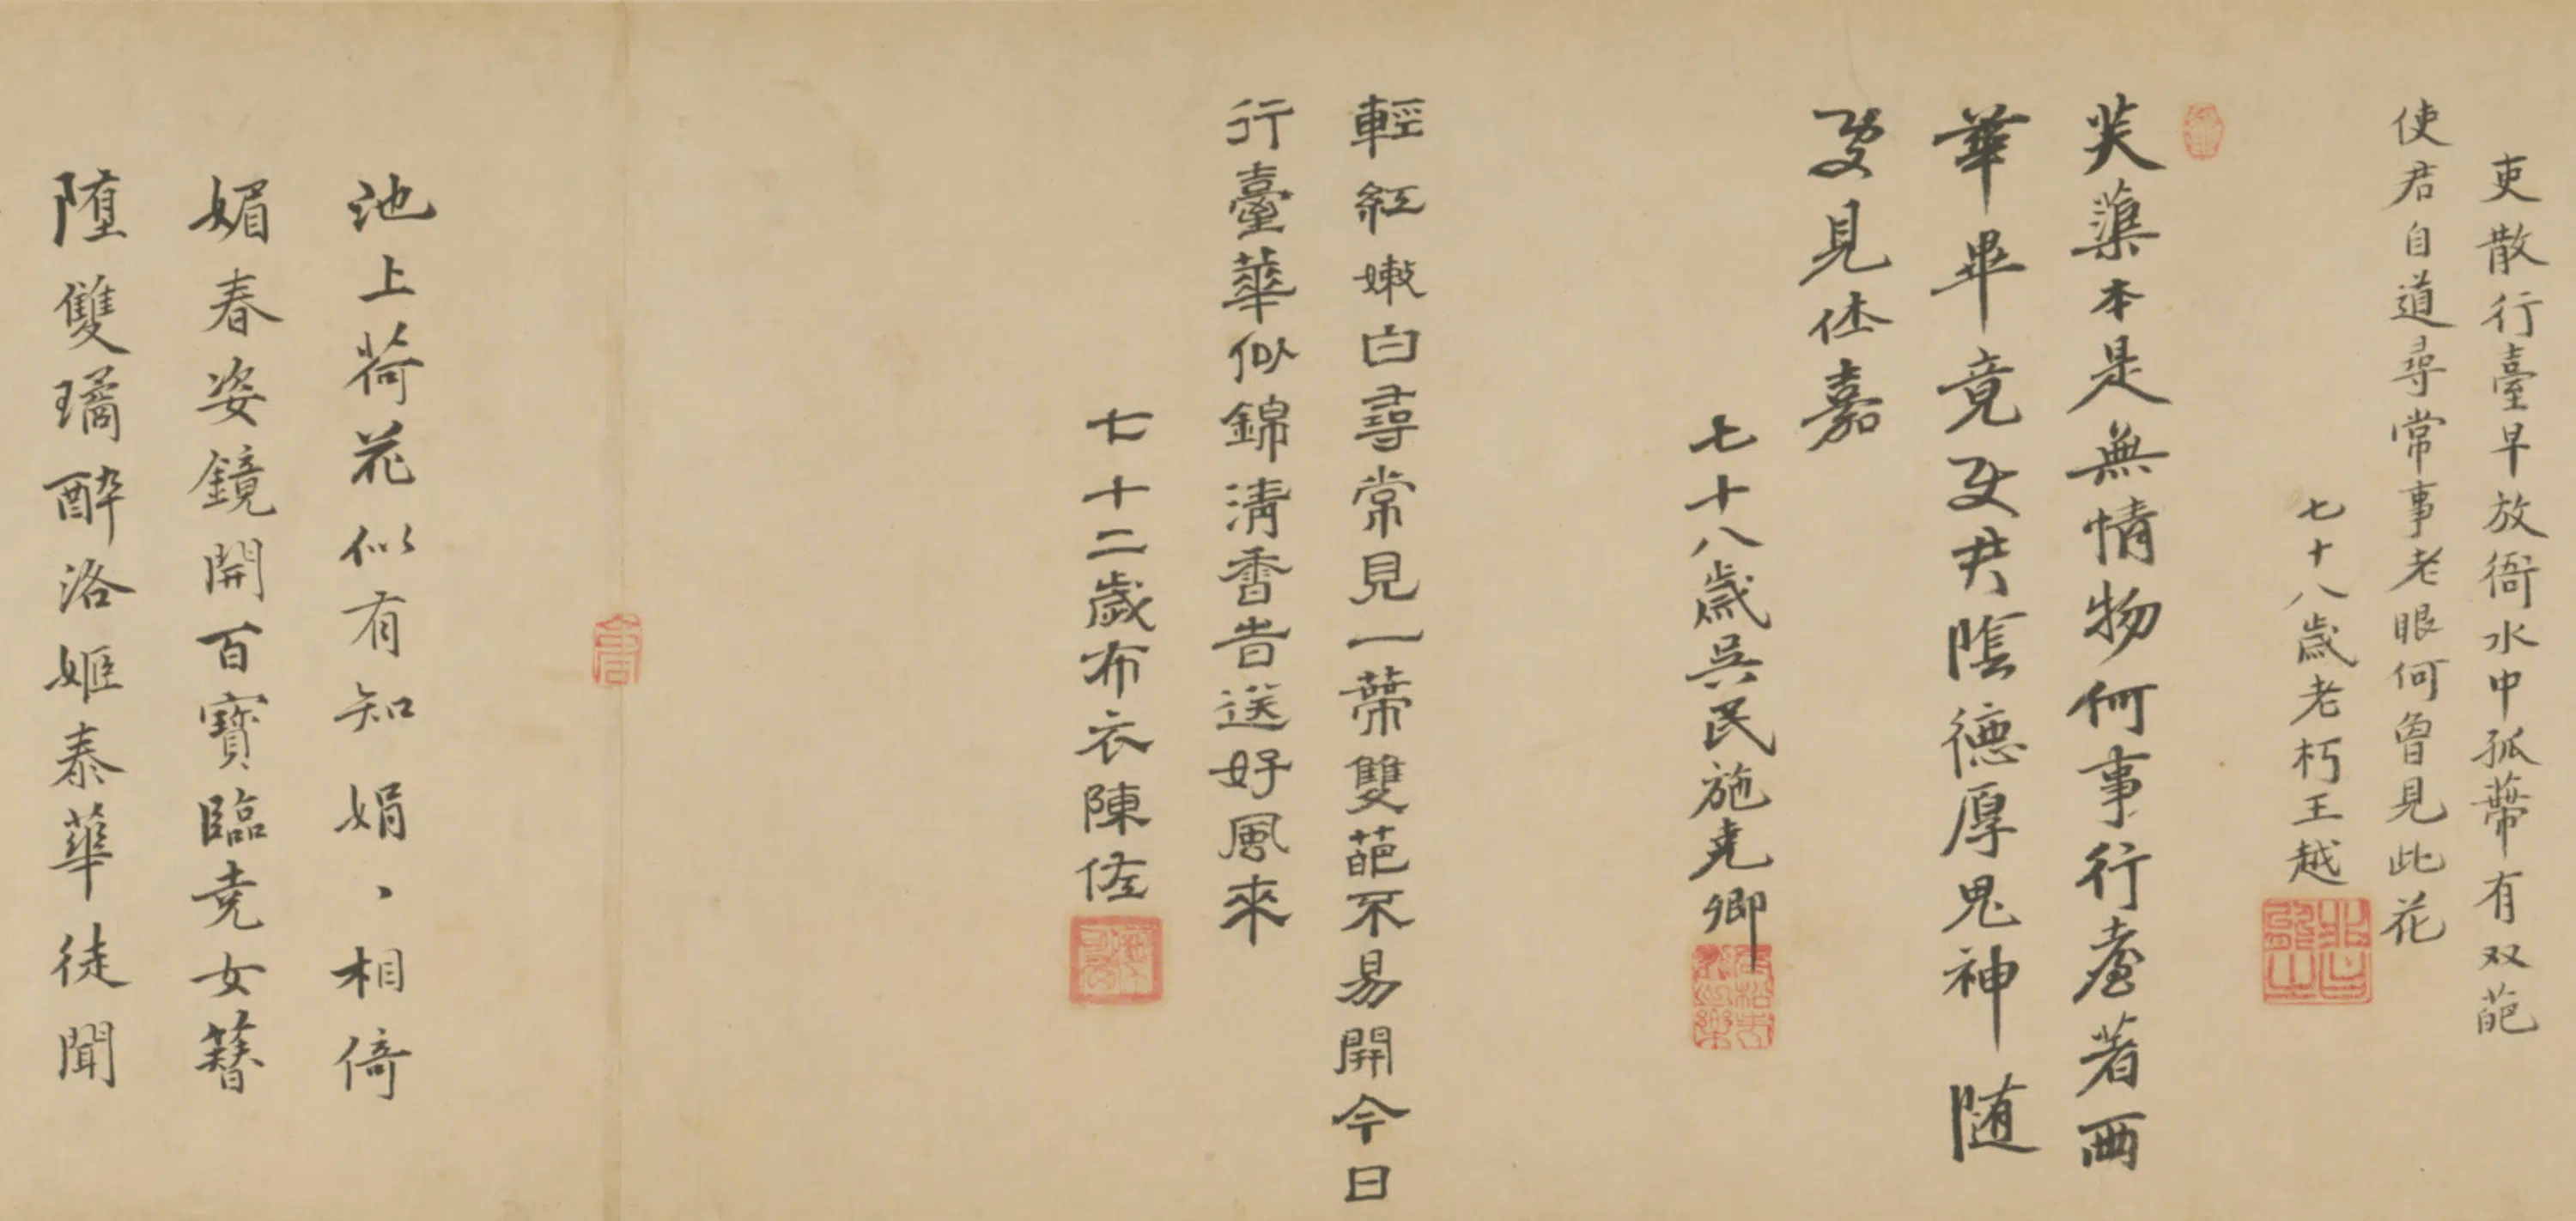 吏散行臺早放衙水中孤蔕有双葩
使君自道尋常事老眼何曾見此花
七十八歲老朽王越
芙蕖本是無情物何事行臺着两
華畢竟史君陰德厚鬼神随
处見休嘉
七十八歲吳民施堯卿
輕紅嫩白尋常見一蔕雙葩不易開今日
行臺華似錦清香皆送好風來
七十二歲布衣陳佐
池上荷花似有知娟、相倚
媚春姿鏡開百寳臨堯女簪
堕雙璚醉洛姬泰華徒聞